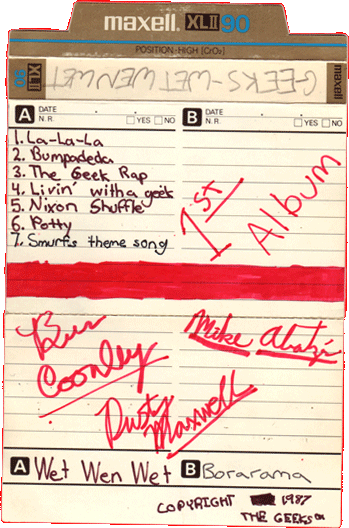 maxell. XLII 90
POSITION·HIGH [CrO₂]
XLII 90 GEEKS-WET WEN WET maxell
A DATE N.R. YES NO
B DATE N.R. YES NO
1. La-La-La
2. Bumpadeda
3. The Geek Rap
4. Livin' with a geek
5. Nixon Shuffle
6. Potty
7. Smurfs theme song
1st
Album
Ben
Coonley
Mike
Dusty
Maxwell
A Wet Wen Wet
B Borarama
COPYRIGHT 1987
THE GEEKS